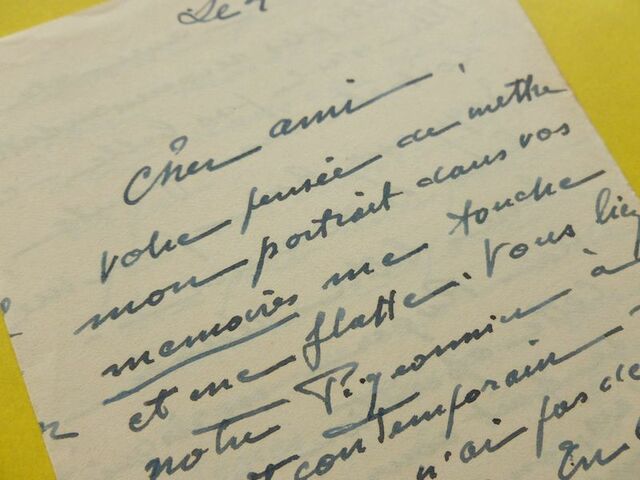 Le
Cher ami,
votre pensée de mettre
mon portrait dans vos
memoires me touche
et me flatte. Vous liez
notre Pigeonnier à
et contemporain
n'ai pas de
En